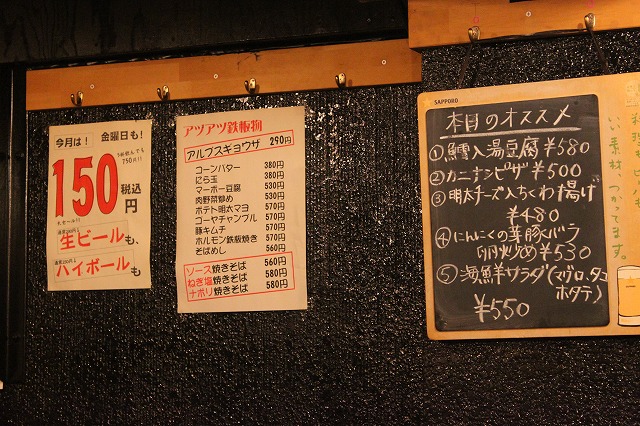 今月は！ 金曜日も！
150円
税込
生ビールも、
ハイボールも
アツアツ鉄板物
アルプスギョウザ 290円
コーンバター 380円
にら玉 380円
マーボー豆腐 530円
肉野菜炒め 530円
ポテト明太マヨ 570円
ゴーヤチャンプル 570円
豚キムチ 570円
ホルモン鉄板焼き 570円
そばめし 560円
ソース焼きそば 560円
ねぎ塩焼きそば 580円
ナポリ焼きそば 580円
SAPPORO
本日のオススメ
① 鱈入湯豆腐 ¥580
② カニナンピザ ¥500
③ 明太チーズ入ちくわ揚げ
¥480
④ にんにくの芽豚バラ
卵炒め ¥530
⑤ 海鮮サラダ(マグロ、タコ
ホタテ)
¥550
い素材
つかってます。